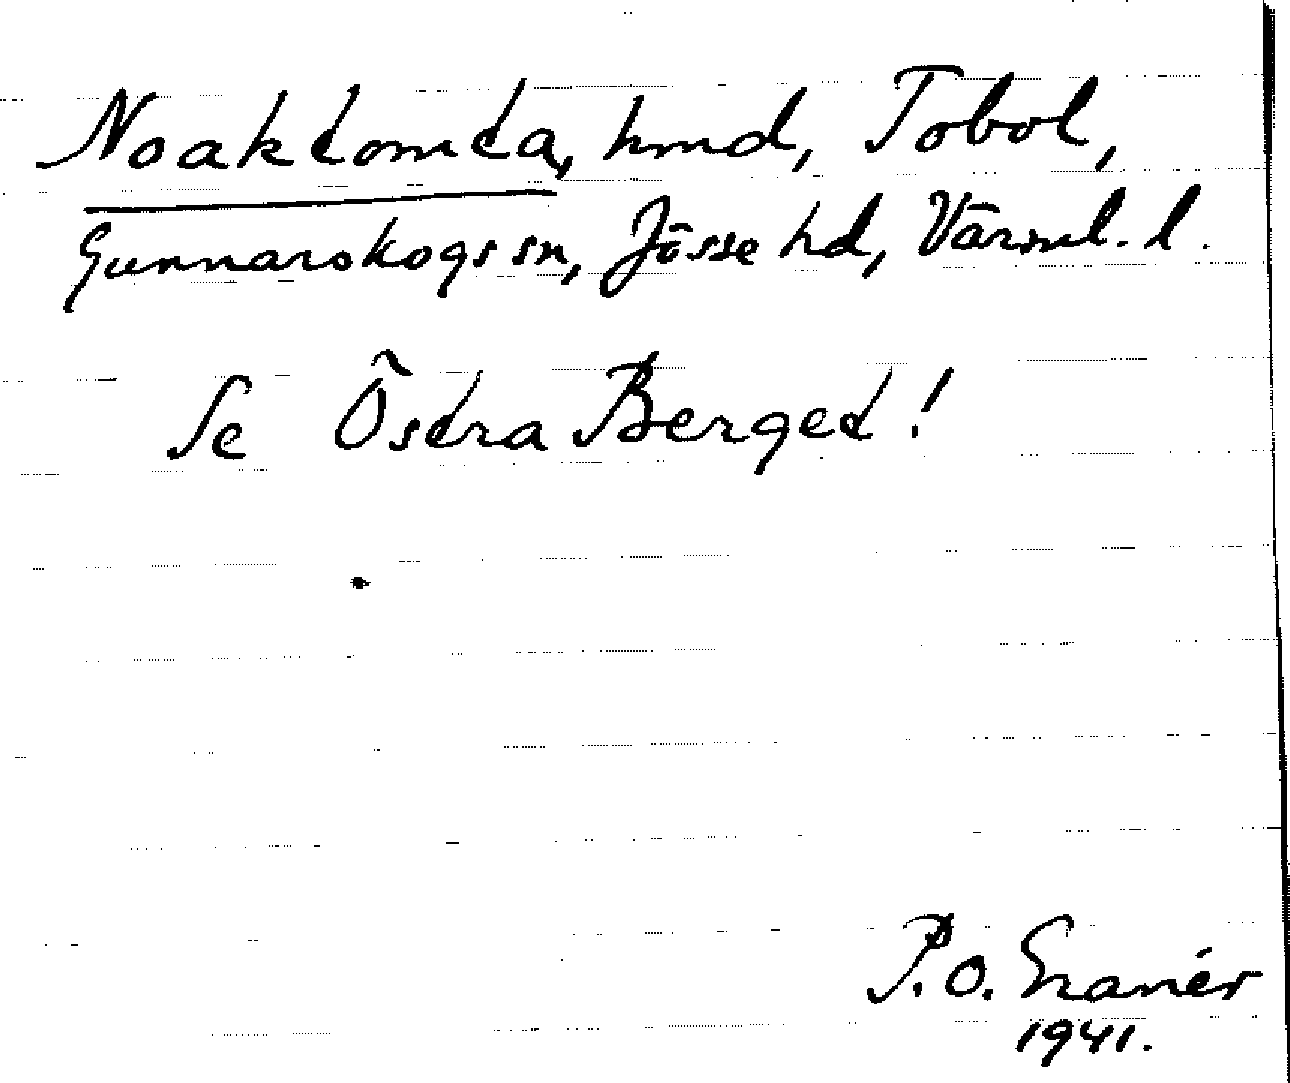 Noaktomta, hmd, Tobol,
Gunnarskogs sn, Jösse hd, Värml. l.
Se Östra Berget!
P. O. Granér
1941.